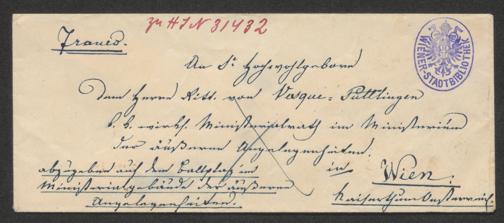 zu H I N 31432
Franco.
WIENER-STADTBIBLIOTHEK
An Sr Hochwohlgeboren
Dem Herrn Ritt. von Vesque-Püttlingen
k. k. wirkl. Ministerialrath im Ministerium
der äußeren Angelegenheiten.
in
Wien.
Kaiserthum Oesterreich
abzugeben auf dem Ballplatz im
Ministerialgebäude der äußeren
Angelegenheiten.